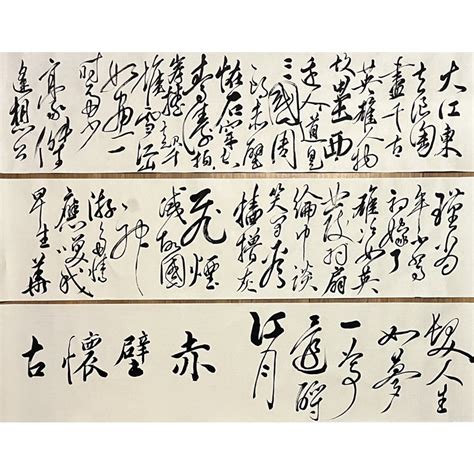 大江東
去浪淘
盡千古
英雄人物
故壘西
邊人道是
三國周
郎赤壁
怪石穿空
驚濤拍
岸捲起千
堆雪江山
如畫一
時多少
豪傑
遙想公
瑾當
年小喬
初嫁了
雄姿英
發羽扇
綸巾談
笑間
檣櫓灰
飛煙
滅故國
神
游多情
應笑我
早生華
髮人生
如夢
一尊
還酹
江月
赤壁懷古